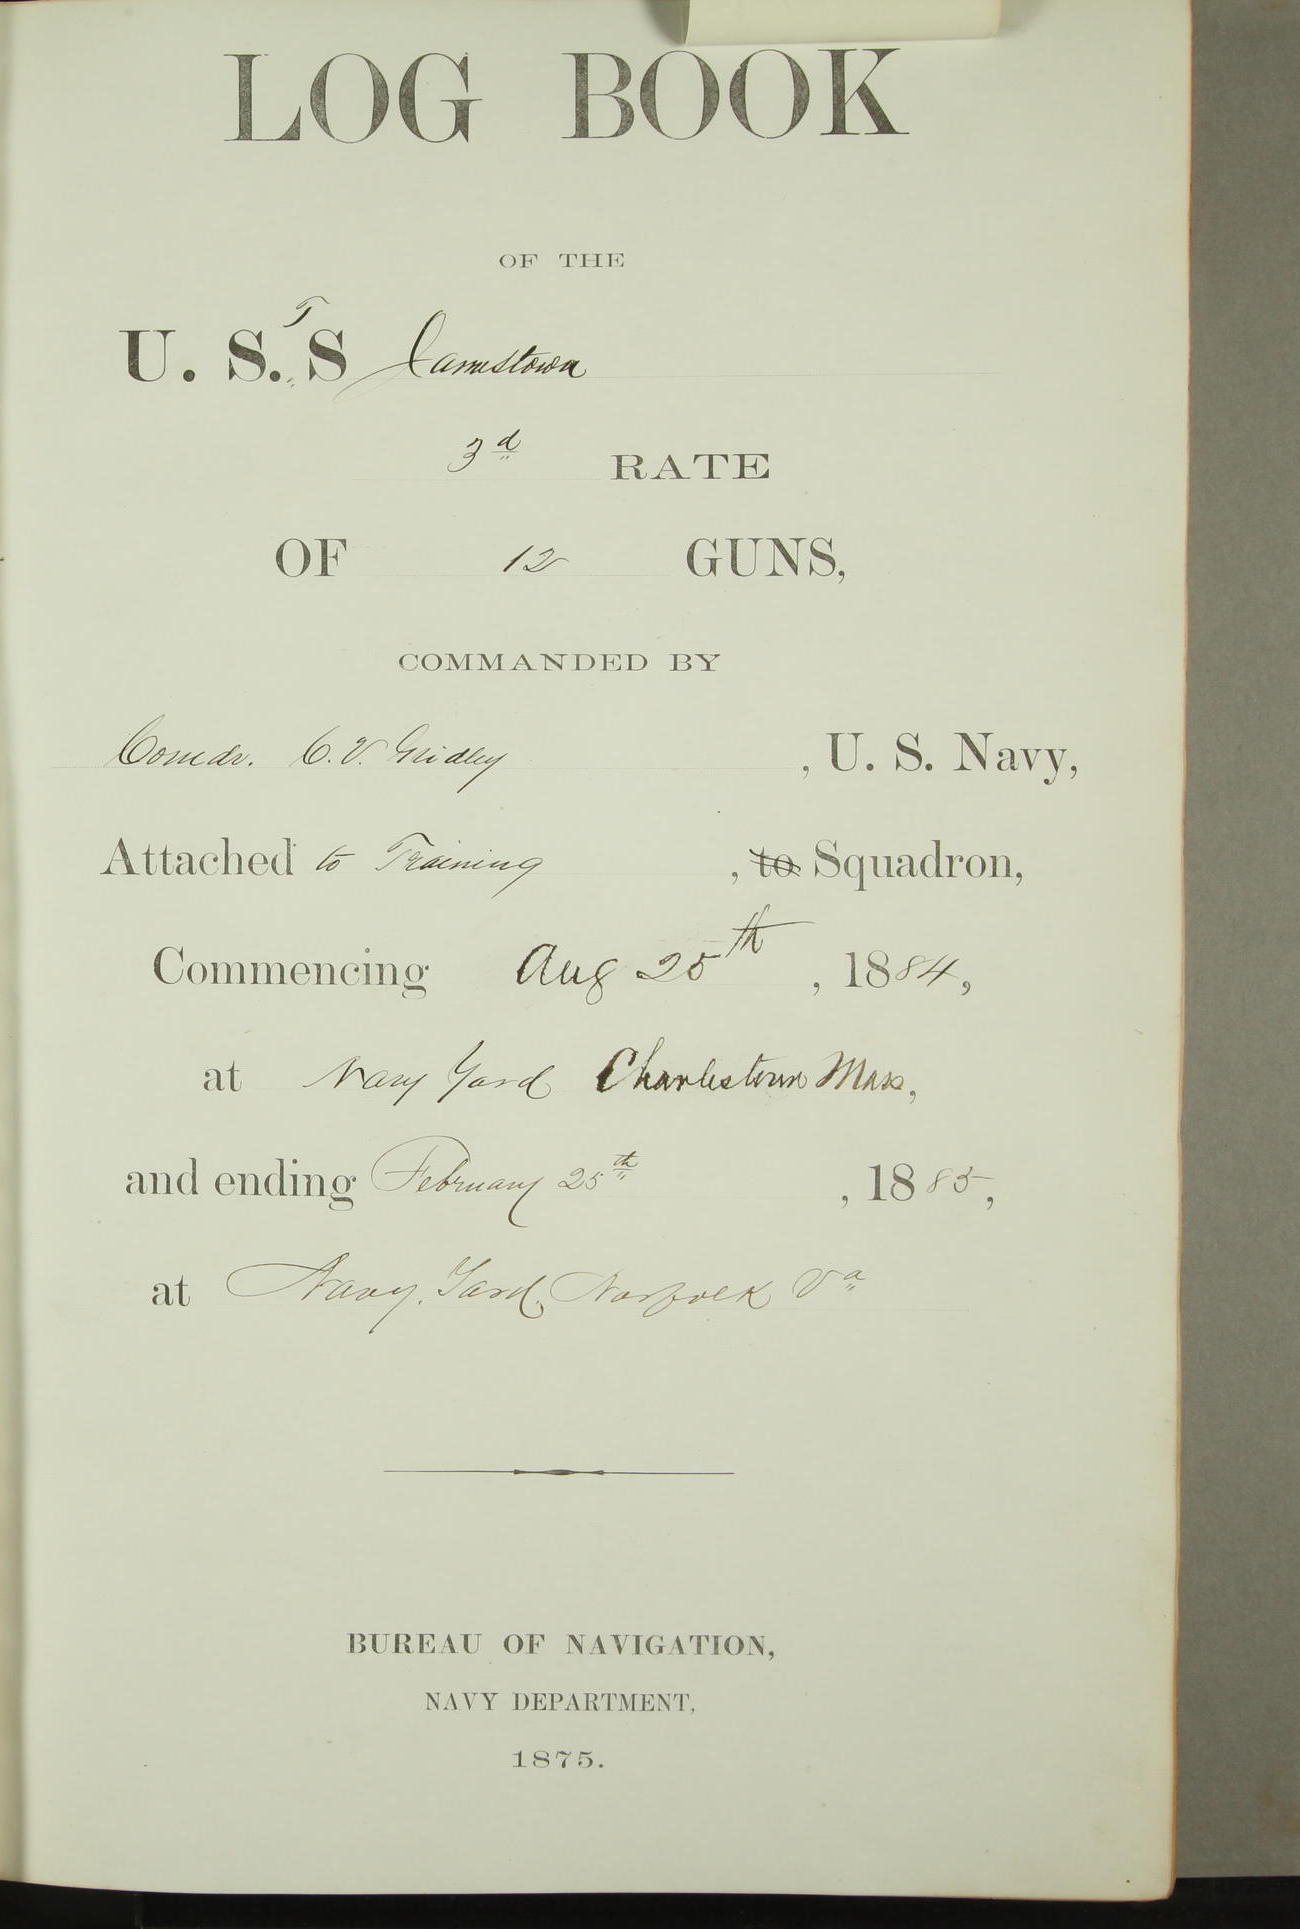 LOG BOOK
OF THE
U. S. T S Jamestown
3d RATE
OF 12 GUNS,
COMMANDED BY
Comdr. C. V. Gridley , U. S. Navy,
Attached to Training , to Squadron,
Commencing Aug 25th , 1884,
at Navy Yard Charlestown Mass,
and ending February 25th , 1885,
at Navy Yard, Norfolk Va
BUREAU OF NAVIGATION,
NAVY DEPARTMENT,
1875.